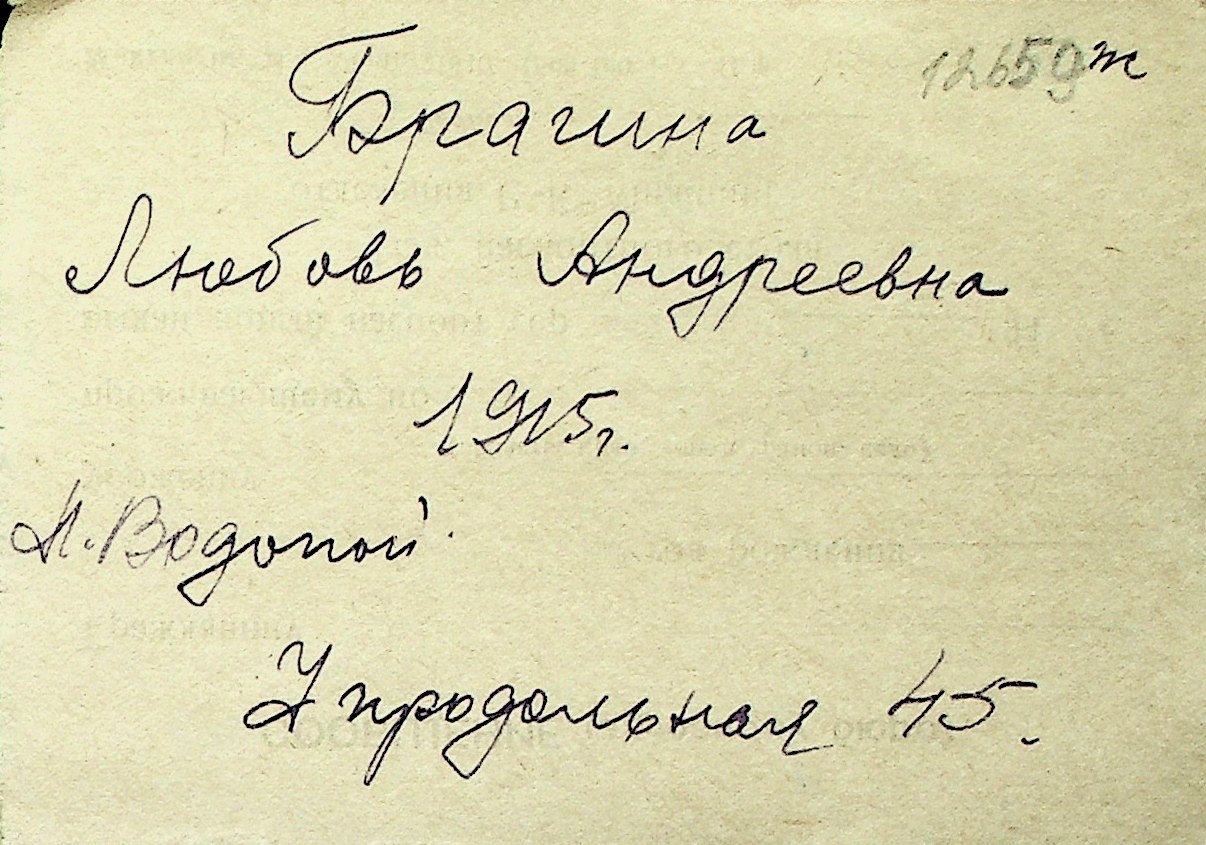 12659ж
Брагина
Любовь Андреевна
1915г.
М. Водопой.
7 продольная 45.